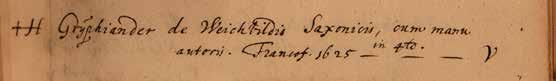 ‡H Gryphiander de Weichbildis Saxonicis, cum manu
autoris. Francof. 1625 — in 4to. — V